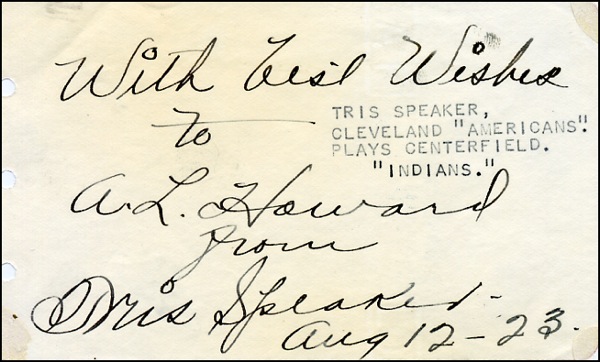 With Best Wishes
to
TRIS SPEAKER,
CLEVELAND "AMERICANS".
PLAYS CENTERFIELD.
"INDIANS."
A.L. Howard
from
Tris Speaker.
Aug 12-23.